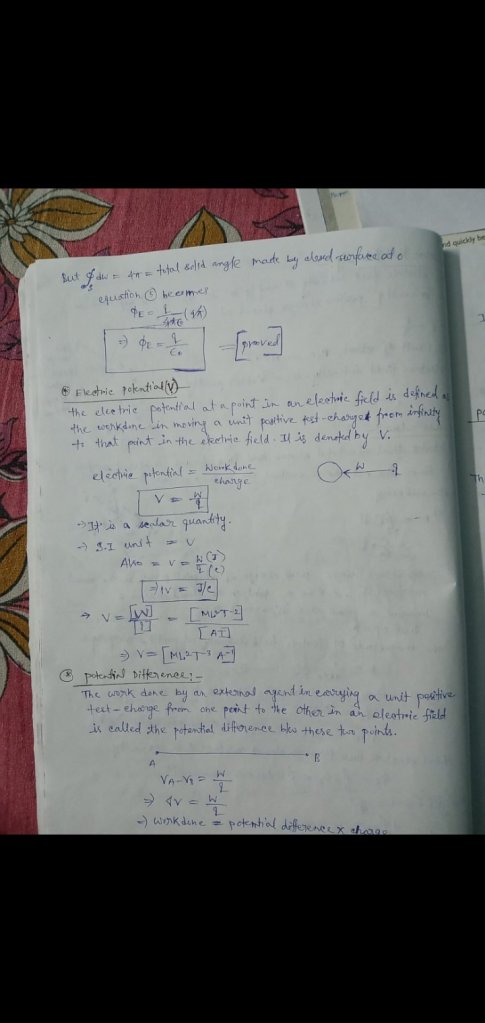 But ∮s dω = 4π = total solid angle made by closed surface at o
equation ⑤ becomes
φE = q/4πε0 (4π)
⇒ φE = q/ε0 = [proved]
* Electric potential (V)
the electric potential at a point in an electric field is defined as
the workdone in moving a unit positive test-charge from infinity
to that point in the electric field. It is denoted by V.
electric potential = Work done/charge
W q
V = W/q
→ It is a scalar quantity.
→ S.I unit = V
Also = V = W(J)/q(C)
⇒ 1V = J/C
→ V = [W]/[q] = [ML²T⁻²]/[AT]
⇒ V = [ML²T⁻³A⁻¹]
* potential Difference:-
The work done by an external agent in carrying a unit positive
test-charge from one point to the other in an electric field
is called the potential difference b/w these two points.
A B
VA-VB = W/q
⇒ ΔV = W/q
⇒ workdone = potential difference x charge
nd quickly be
Th